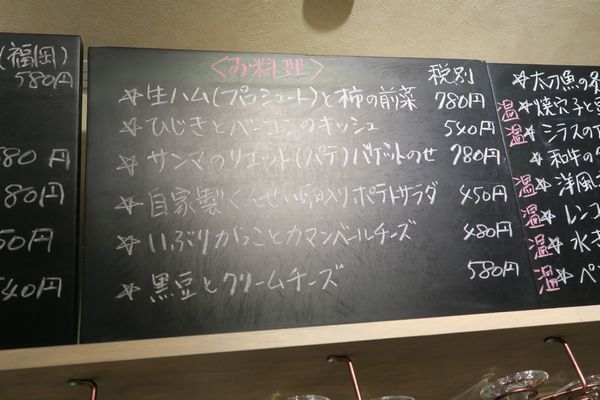 (福岡)
580円
580円
80円
50円
540円
〈お料理〉 税別
☆生ハム(プロシュート)と柿の前菜 780円
☆ひじきとベーコンのキッシュ 540円
☆サンマのリエット(パテ)バゲットのせ 780円
☆自家製くんせい卵入りポテトサラダ 450円
☆いぶりがっことカマンベールチーズ 480円
☆黒豆とクリームチーズ 580円
☆太刀魚の
温☆焼穴子と
温☆シラスの
☆和牛の
温☆洋風
温☆レンコ
温☆水さ
温☆ペ